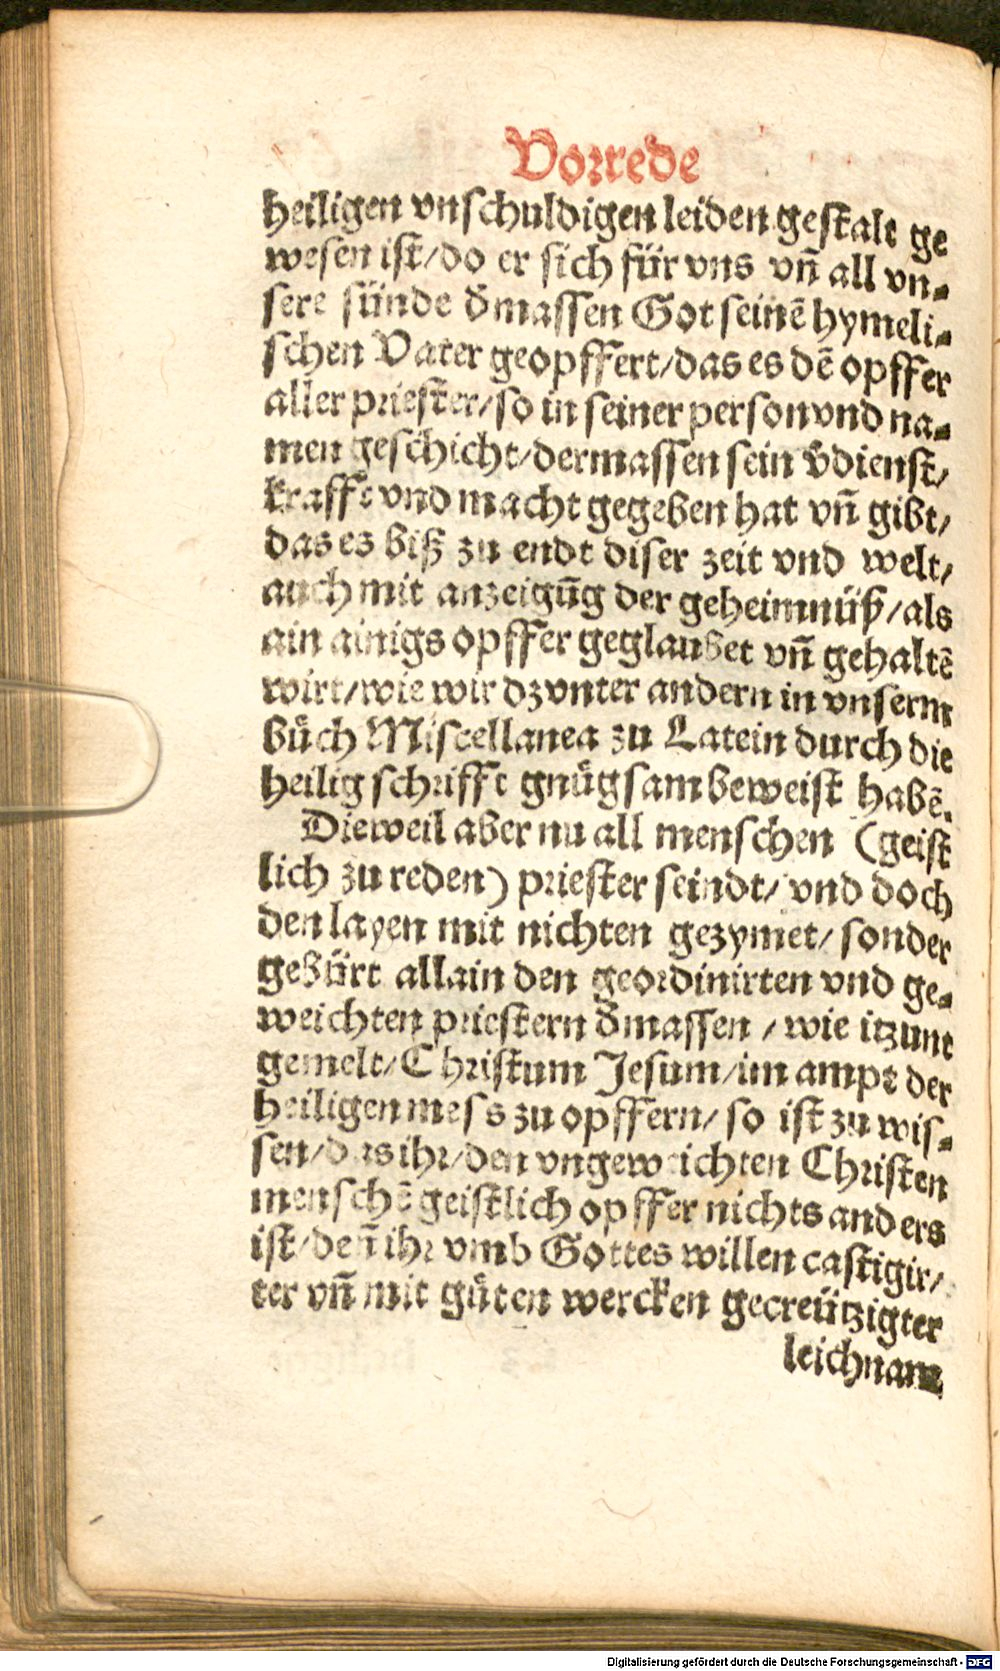 Vorrede
heiligen vnschuldigen leiden gestalt ge
wesen ist/do er sich für vns vñ all vn-
sere sünde d̃massen Got seinẽ hymeli-
schen Vater geopffert/das es dẽ opffer
aller priester/so in seiner person vnd na-
men geschicht/dermassen sein ṽdienst/
krafft vnd macht gegeben hat vñ gibt/
das es biß zu endt diser zeit vnd welt/
auch mit anzeigũg der geheimnüß/als
ain ainigs opffer geglaubet vñ gehaltẽ
wirt/wie wir dz vnter andern in vnserm
bůch Miscellanea zu Latein durch die
heilig schrifft gnůgsam beweist habẽ.
Dieweil aber nu all menschen (geist
lich zu reden) priester seindt/ vnd doch
den layen mit nichten gezymet/ sonder
gebürt allain den geordinirten vnd ge-
weichten priestern d̃massen / wie itzunt
gemelt/Christum Jesum/im ampt der
heiligen mess zu opffern/ so ist zu wis-
sen/das ihr/den vngeweichten Christen
menschẽ geistlich opffer nichts anders
ist/deñ ihr vmb Gottes willen castigir/
ter vñ mit gůten wercken gecreützigter
leichnam
Digitalisierung gefördert durch die Deutsche Forschungsgemeinschaft - DFG